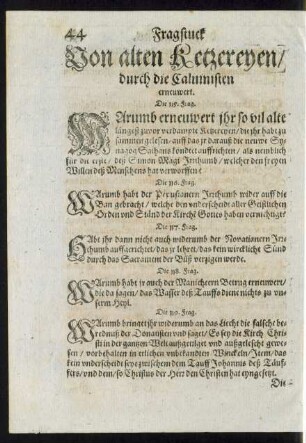 44 Fragstuck
Von alten Ketzereyen/
durch die Caluinisten
ernewert.
Die 315. Frag.
WArumb ernewert jhr so vil alte
längst zuvor verdampte Ketzereyen/ die jhr habt zu
sammen gelesen/ auff das jr darauß die newe Sy-
nagog Sathans köndtet auffrichten/ als nemblich
für die erste/ deß Simon Magi Irrthumb/ welcher den freyen
Willen deß Menschens hat verworffen?
Die 316. Frag.
WArumb habt der Irrthumb wider auff die
Ban gebracht/ welche den underscheidt aller Geistlichen
Orden und Ständ der Kirchē Gottes haben vernichtiget?
Die 317. Frag.
HAbt jhr dann nicht auch widerumb der Novatianern Irr-
thumb auffgerichtet/ das jr lehret/ das kein wirckliche Sünd
durch das Sacrament der Büß verzigen werde.
Die 318. Frag.
WArumb habt jr auch der Manicheern Betrug ernewert/
die da sagen/ das Wasser deß Tauffs diene nichts zu un-
serm Heyl.
Die 319. Frag.
WArumb bringet jhr widerumb an das Liecht die falsche be-
der Donatisten und saget/ Es sey die Kirch Chri-
sti in der gantzen Welt außgetilget und außgelescht gewe-
sen/ vorbehalten in etlichen unbekandten Winckeln/ Item/ das
kein underscheide sey zwischen dem Tauff Johannis deß Täuf-
fers/ und dem/ so Christus der Herr den Christen hat eyngesetzt.
Die